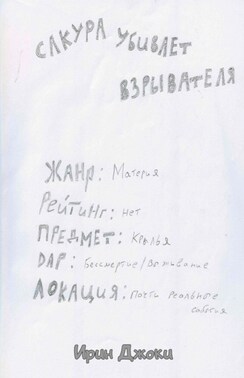 САКУРА УБИВАЕТ
ВЗРЫВАТЕЛЯ
ЖАНР: Материя
РЕЙТИНГ: Нет
ПРЕДМЕТ: Крылья
DAP: Бессмертие/Выживание
ЛОКАЦИЯ: Почти реальные
события
Ирин Джоки